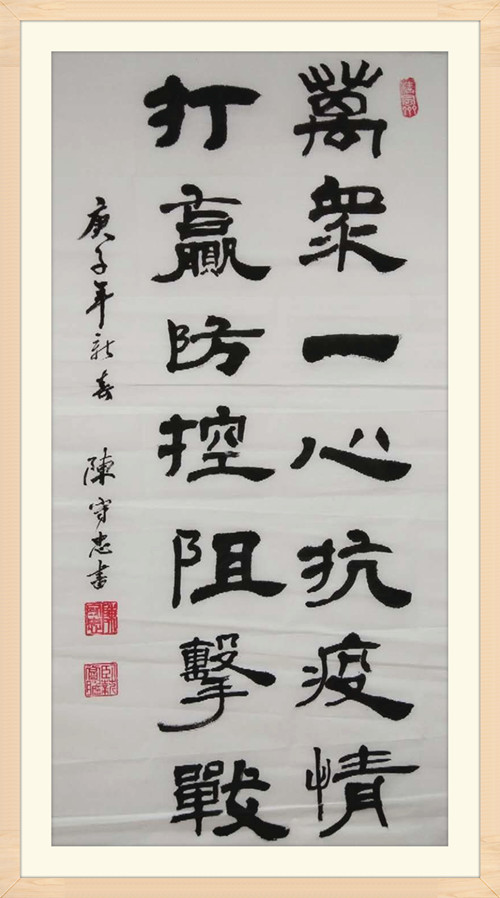 萬眾一心抗疫情
打贏防控阻擊戰
庚子年新春 陳守忠書